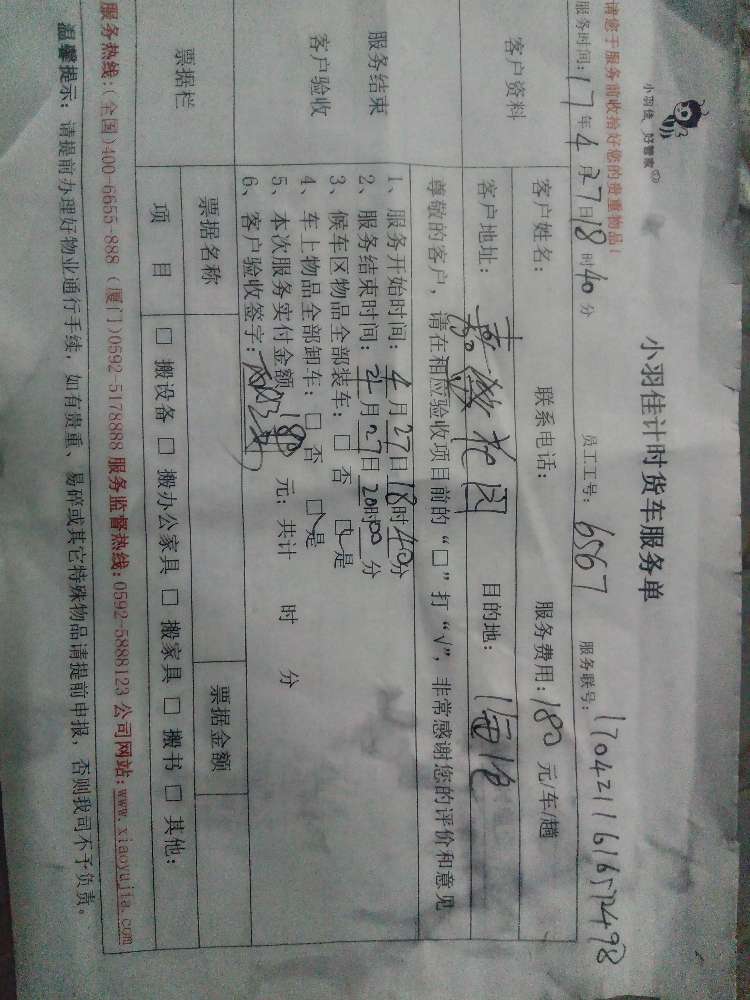 小羽佳 好管家
小羽佳计时货车服务单
请您于服务前收拾好您的贵重物品!
服务时间:17年4月27日18时40分 员工工号:6567 服务联号:
客户资料
客户姓名: 联系电话: 服务费用:180元/车/趟
客户地址: 花园 目的地:
服务结束
客户验收
尊敬的客户,请在相应验收项目前的“□”打“√”,非常感谢您的评价和意见
1、服务开始时间:4月27日18时40分
2、服务结束时间:4月27日20时00分
3、候车区物品全部装车:□ 否 □ 是
4、车上物品全部卸车:□ 否 □ 是
5、本次服务实付金额180元;共计 时 分
6、客户验收签字:
票据栏
票据名称 票据金额
项 目 □ 搬设备 □ 搬办公家具 □ 搬家具 □ 搬书 □ 其他:
服务热线:(全国)400-6655-888 (厦门)0592-5178888 服务监督热线:0592-5888123 公司网站:www.xiaoyujia.com
温馨提示:请提前办理好物业通行手续,如有贵重、易碎或其它特殊物品请提前申报,否则我司不予负责。